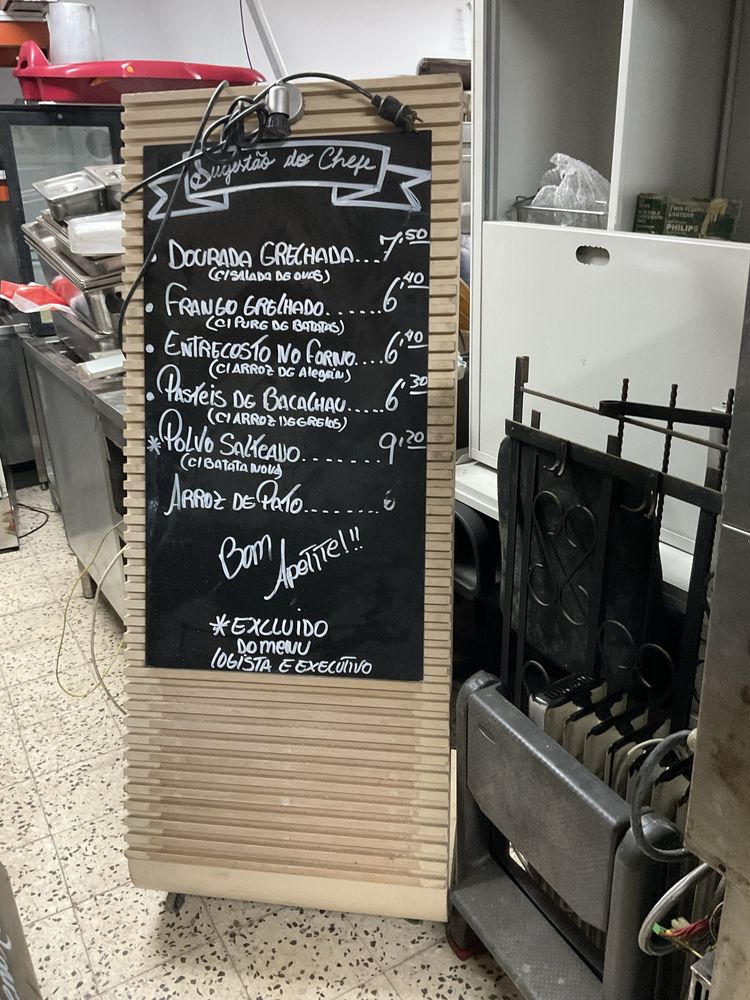 Sugestão do Chefe
• DOURADA GRELHADA...7,50
(C/SALADA DE OVAS)
• FRANGO GRELHADO......6,40
(C/PURE DE BATATAS)
• ENTRECOSTO NO FORNO....6,40
(C/ARROZ DE Alegria)
• PASTEIS DE BACALHAU....6,30
(C/ARROZ DE GRELOS)
* POLVO SALTEADO.........9,20
(C/BATATA NOVA)
ARROZ DE PATO.........
BOM
APETITE!!!
*EXCLUIDO
DO MENU
LOGISTA E EXECUTIVO
PHILIPS